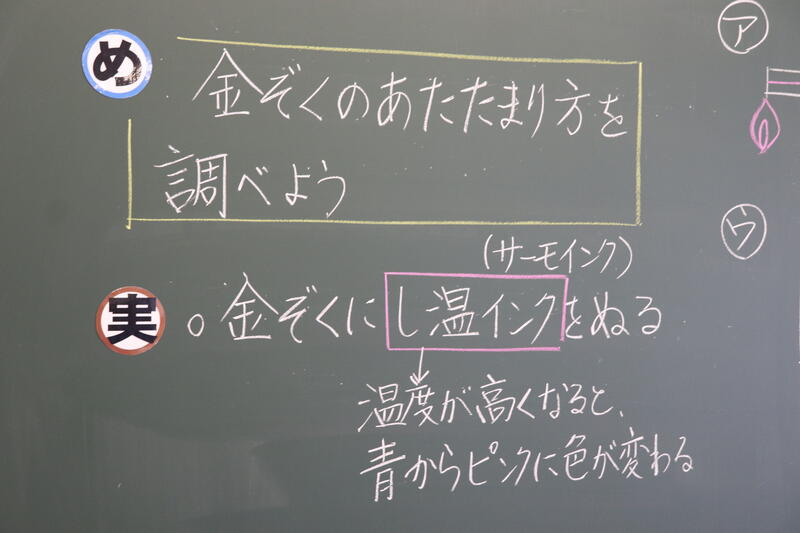 め
金ぞくのあたたまり方を
調べよう
(サーモインク)
実 。金ぞくにし温インクをぬる
温度が高くなると、
青からピンクに色が変わる
ア
ウ